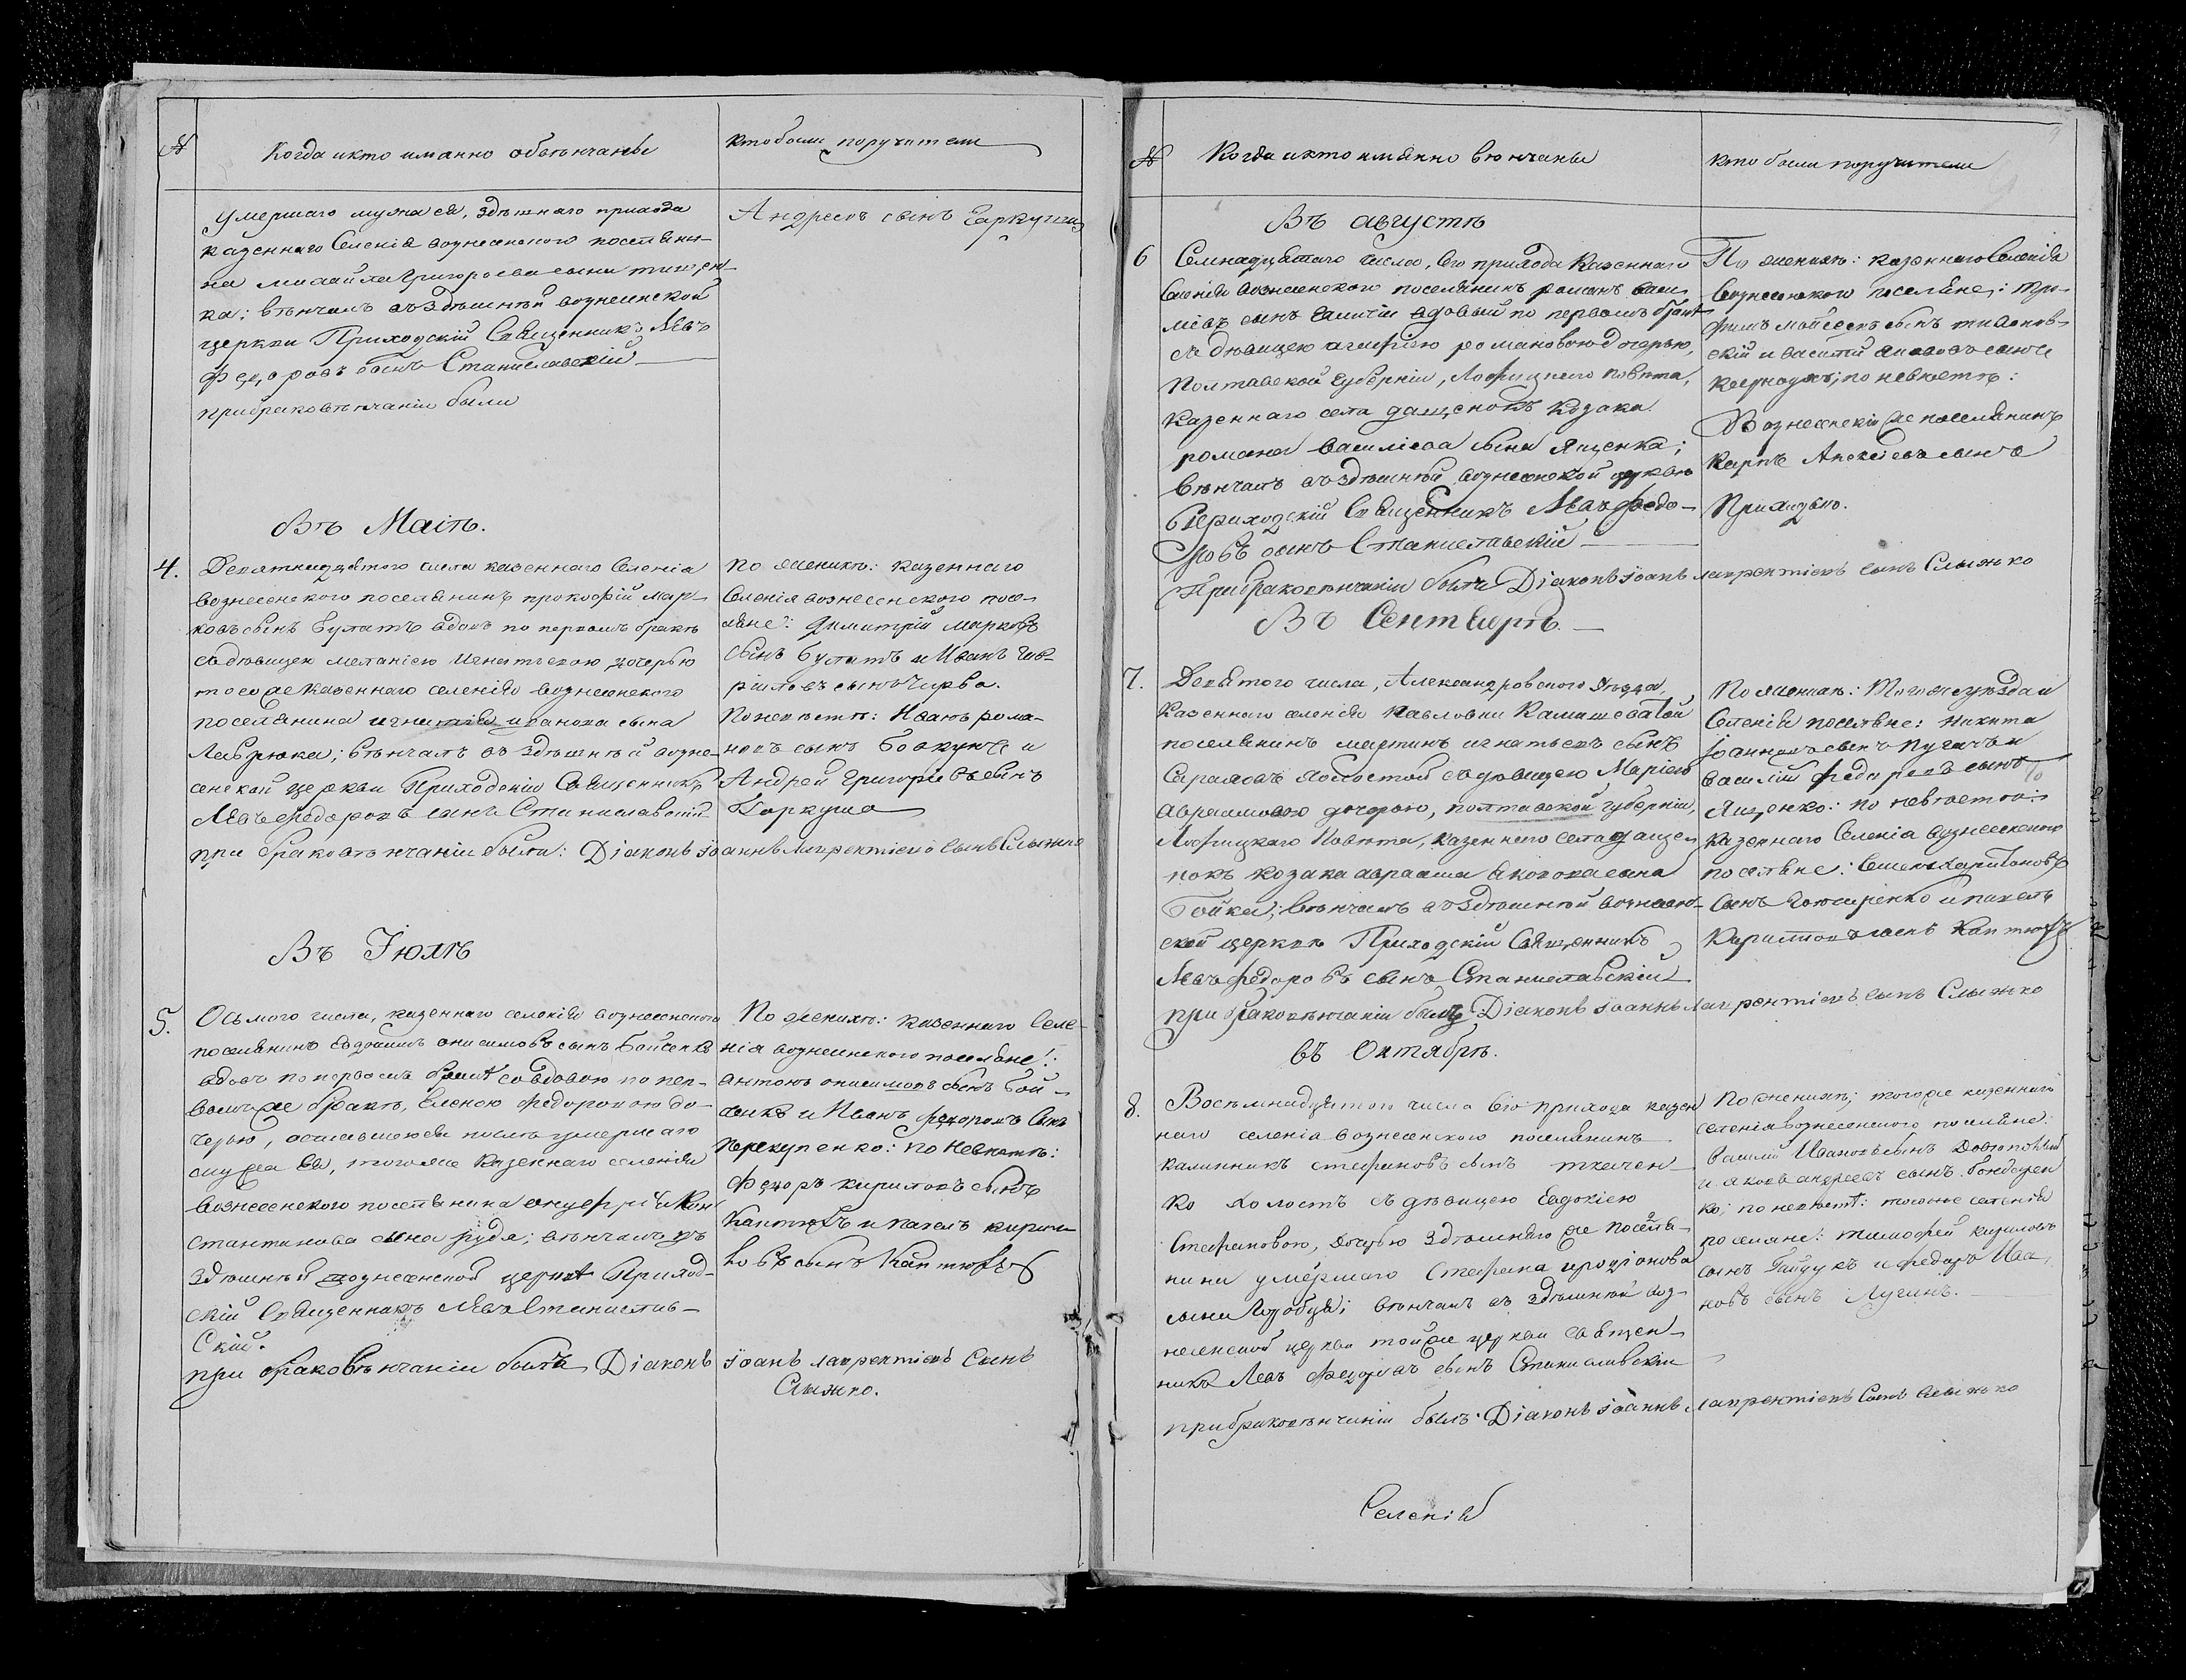 №
Когда и кто имянно обвѣнчаны
кто были поручители
умершаго мужа ея, здѣшняго прихода
казеннаго Селенія вознесенского поселяни-
на михайла Григорьева сына
ка; вѣнчалъ въ здѣшнѣй вознесенской
церкви Приходскій Священникъ Левъ
Федоровъ сынъ Станиславскій
при браковѣнчаніи были
Андреевъ сынъ Гаркуша
Въ Маіѣ.
4.
Девятнадцятого числа казеннаго Селенія
вознесенского поселянинъ прокофій Мар-
ковъ сынъ Булатъ вдовъ по первомъ бракѣ
съ дѣвицею меланіею Игнатьевою дочерью
того же казеннаго селенія вознесенского
поселянина игнатія иванова сына
Лаврюка; вѣнчалъ въ здѣшнѣй возне-
сенской церкви Приходскій Священникъ
Левъ Федоровъ сынъ Станиславскій
при браковѣнчаніи былъ: Діаконъ Іоаннъ Лаврентіевъ сынъ Слыжко
по женихѣ: казеннаго
Селенія вознесенского посе-
ляне: Димитрій Марковъ
сынъ Булатъ и Иванъ Гав-
риловъ сынъ Чирва.
По невѣстѣ: Иванъ рома-
новъ сынъ и
Андрей Григорьевъ сынъ
Гаркуша
Въ Іюлѣ
5.
Осьмого числа, казеннаго селенія вознесенского
поселянинъ Евдокимъ онисимовъ сынъ Бойченко
вдовъ по первомъ бракѣ со вдовою по пер-
вомъ же бракѣ, Еленою Федоровою до-
черью, оставшеюся послѣ умершаго
мужа ея, того же Казеннаго селенія
вознесенского поселянина онуфрія Кон-
стантинова сына рудя; вѣнчалъ въ
здѣшнѣй вознесенской церквѣ Приход-
скій Священникъ Левъ Станислав-
Скій.
при браковѣнчаніи былъ Діаконъ Іоанъ лаврентіевъ сынъ
Слыжко.
По женихѣ: казеннаго Селе-
нія вознесенского поселяне:
антонъ онисимовъ сынъ Бой-
ченко и Иванъ Федоровъ Сынъ
Перекупенко: по Невѣстѣ:
Федоръ кириловъ сынъ
Каптюхъ и павелъ кирил-
ловъ сынъ Каптюхъ
№
Когда и кто имянно вѣнчаны
кто были поручители
9
Въ августѣ
6
Семнадцятого числа, Сего прихода Казеннаго
Селенія Вознесенского поселянинъ романъ васи-
ліевъ сынъ вдовый по первомъ бракѣ
съ дѣвицею агафіею романовою дочерью,
Полтавской Губерніи, Лофицкаго повѣта,
Казеннаго села дащенокъ козака
романа василіева сына Яценка;
вѣнчалъ въ здѣшнѣй вознесенской церквѣ
Приходскій Священникъ Левъ Федо-
ровъ сынъ Станиславскій
При браковѣнчаніи былъ Діаконъ Іоанъ лаврентіевъ сынъ Слыжко
По женихѣ: казеннаго Селенія
вознесенского поселяне: тро-
фимъ мойсеевъ сынъ
скій и василій яковлевъ сынъ
по невѣстѣ:
Вознесенскій же поселянинъ
карпъ Алексѣевъ сынъ
Приходько.
Въ Сентябрѣ.
7.
Девятого числа, Александровского уѣзда,
Казеннаго селенія Павловки Камышеватой
поселянинъ мартинъ игнатьевъ сынъ
холостой съ дѣвицею Маріею
авраамовою дочерью, полтавской губерніи,
Лофицкаго Повѣта, казеннаго села дащен-
покъ козака авраама яковлева сына
Бойка; вѣнчалъ въ здѣшнѣй вознесен-
ской церквѣ Приходскій Священникъ
Левъ Федоровъ сынъ Станиславскій
при браковѣнчаніи былъ Діаконъ Іоаннъ Лаврентіевъ сынъ Слыжко
По женихѣ: Того же уѣзда и
Селенія поселяне: никита
Іоанновъ сынъ Пугачъ и
василій Федоровъ сынъ
Яценко: по невѣстѣ:
казеннаго Селенія вознесенского
поселяне: Семенъ Харитоновъ
сынъ и павелъ
Кириловъ сынъ Каптюхъ
въ Октябрѣ.
8.
Восѣмнадцятого числа Сего прихода казен-
наго селенія вознесенского поселянинъ
калинникъ стефановъ сынъ ткачен-
ко холостъ съ дѣвицею Евдокіею
Стефановою, дочерью здѣшняго же поселя-
нина умершаго Стефана иродіонова
сына вѣнчалъ въ здѣшнѣй воз-
несенской церкви той же церкви священ-
никъ Левъ Федоровъ сынъ Станиславскій
при браковѣнчаніи былъ Діаконъ Іоаннъ Лаврентіевъ Сынъ Слыжко
По женихѣ; того же казеннаго
селенія вознесенского поселяне:
василій Ивановъ сынъ
и яковъ андреевъ сынъ бондарен-
ко; по невѣстѣ: того же селенія
поселяне: тимофей кириловъ
сынъ Гайдукъ и Федоръ Ива-
новъ сынъ Лучинъ.
Селенія